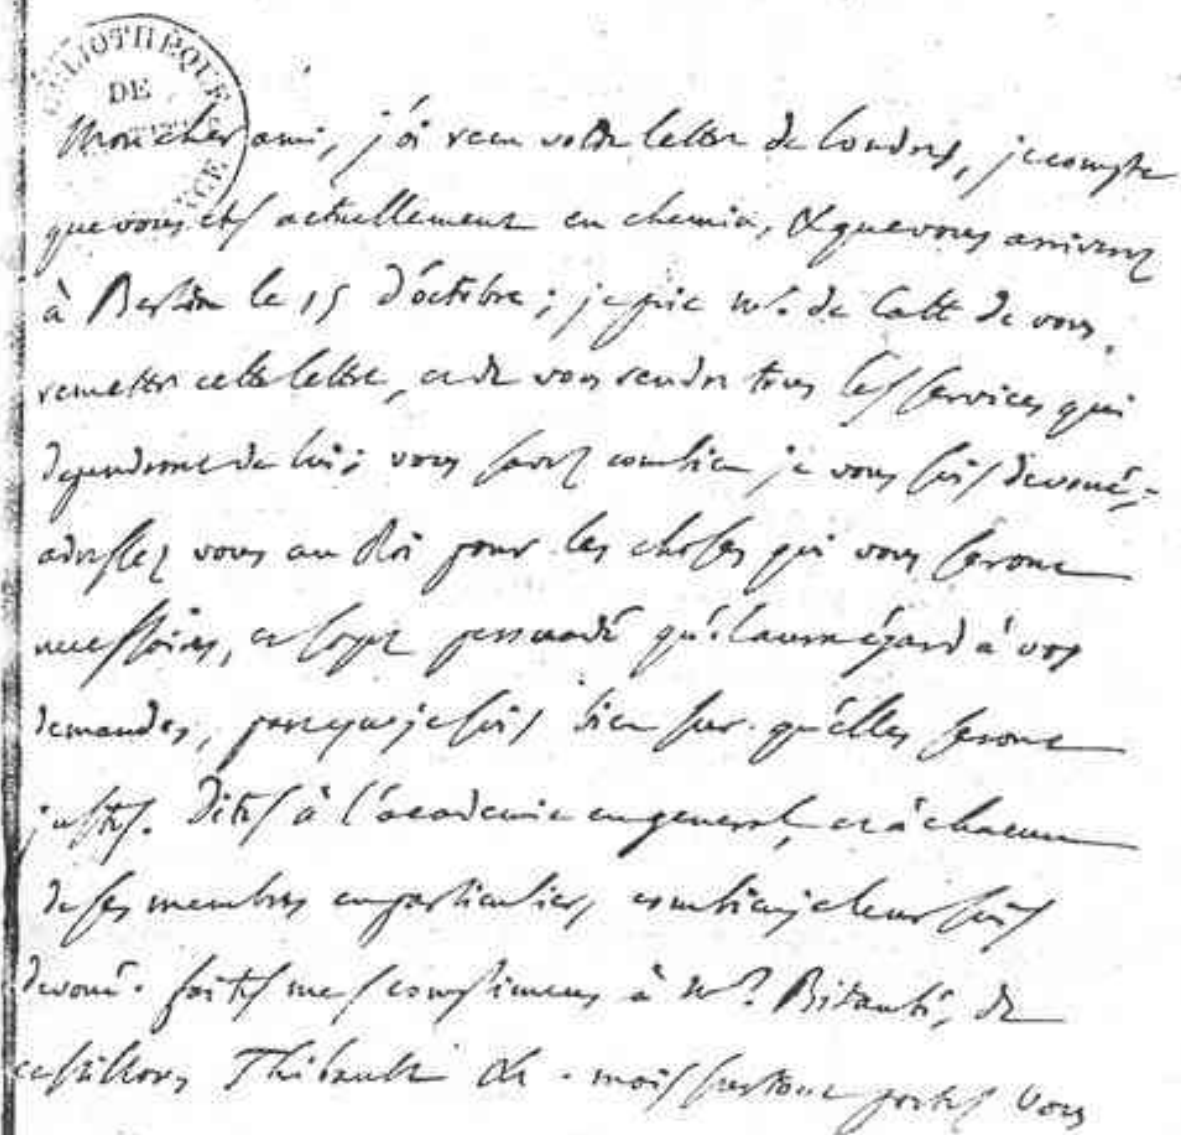 BIBLIOTHEQUE
DE
Mon cher ami, j'ai recu votre lettre de Londres, je compte
que vous etes actuellement en chemin, & que vous arriverez
à Berlin le 15 d'octobre; je prie M. de Catt de vous
remettre cette lettre, et de vous rendre tous les services qui
dependront de lui; vous savez combien je vous suis devoué;
adressez vous au Roi pour les choses qui vous seront
necessaires, et soyez persuadé qu'il aura égard à vos
demandes, parceque je suis bien sur qu'elles seront
justes. Dites à l'academie en general, et à chacun
de ses membres en particulier, combien je leur suis
devoué. faites mes complimens à Mrs Bitaubé, de
castillon, Thibault &c. mais surtout portez vous